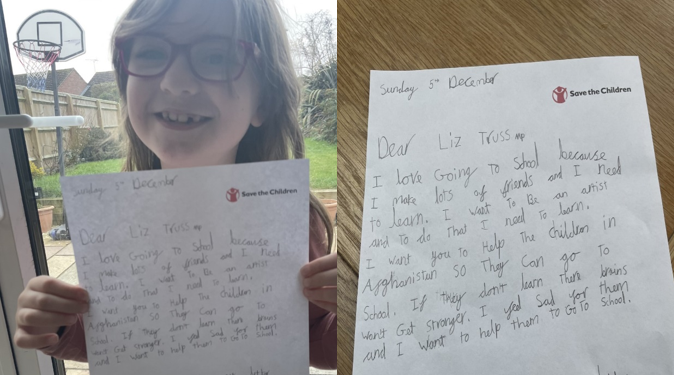 Sunday 5th December
Save the Children
Dear Liz Truss MP
I love Going To School because
I make lots of friends and I Need
to learn. I want To Be an artist
and To do That I need To learn.
I want you To Help The Children in
Afghanistan SO They Can go To
School. If they don't learn There brains
want Get stronger. I feel Sad for them
and I want to help them to Go To School.
Sunday 5th December
Save the Children
Dear Liz Truss MP
I love Going To School because
I make lots of friends and I Need
to learn. I want To Be an artist
and To do That I need To learn.
I want you To Help The Children in
Afghanistan SO They Can go To
School. If they don't learn There brains
want Get stronger. I feel Sad for them
and I want to help them to Go To School.